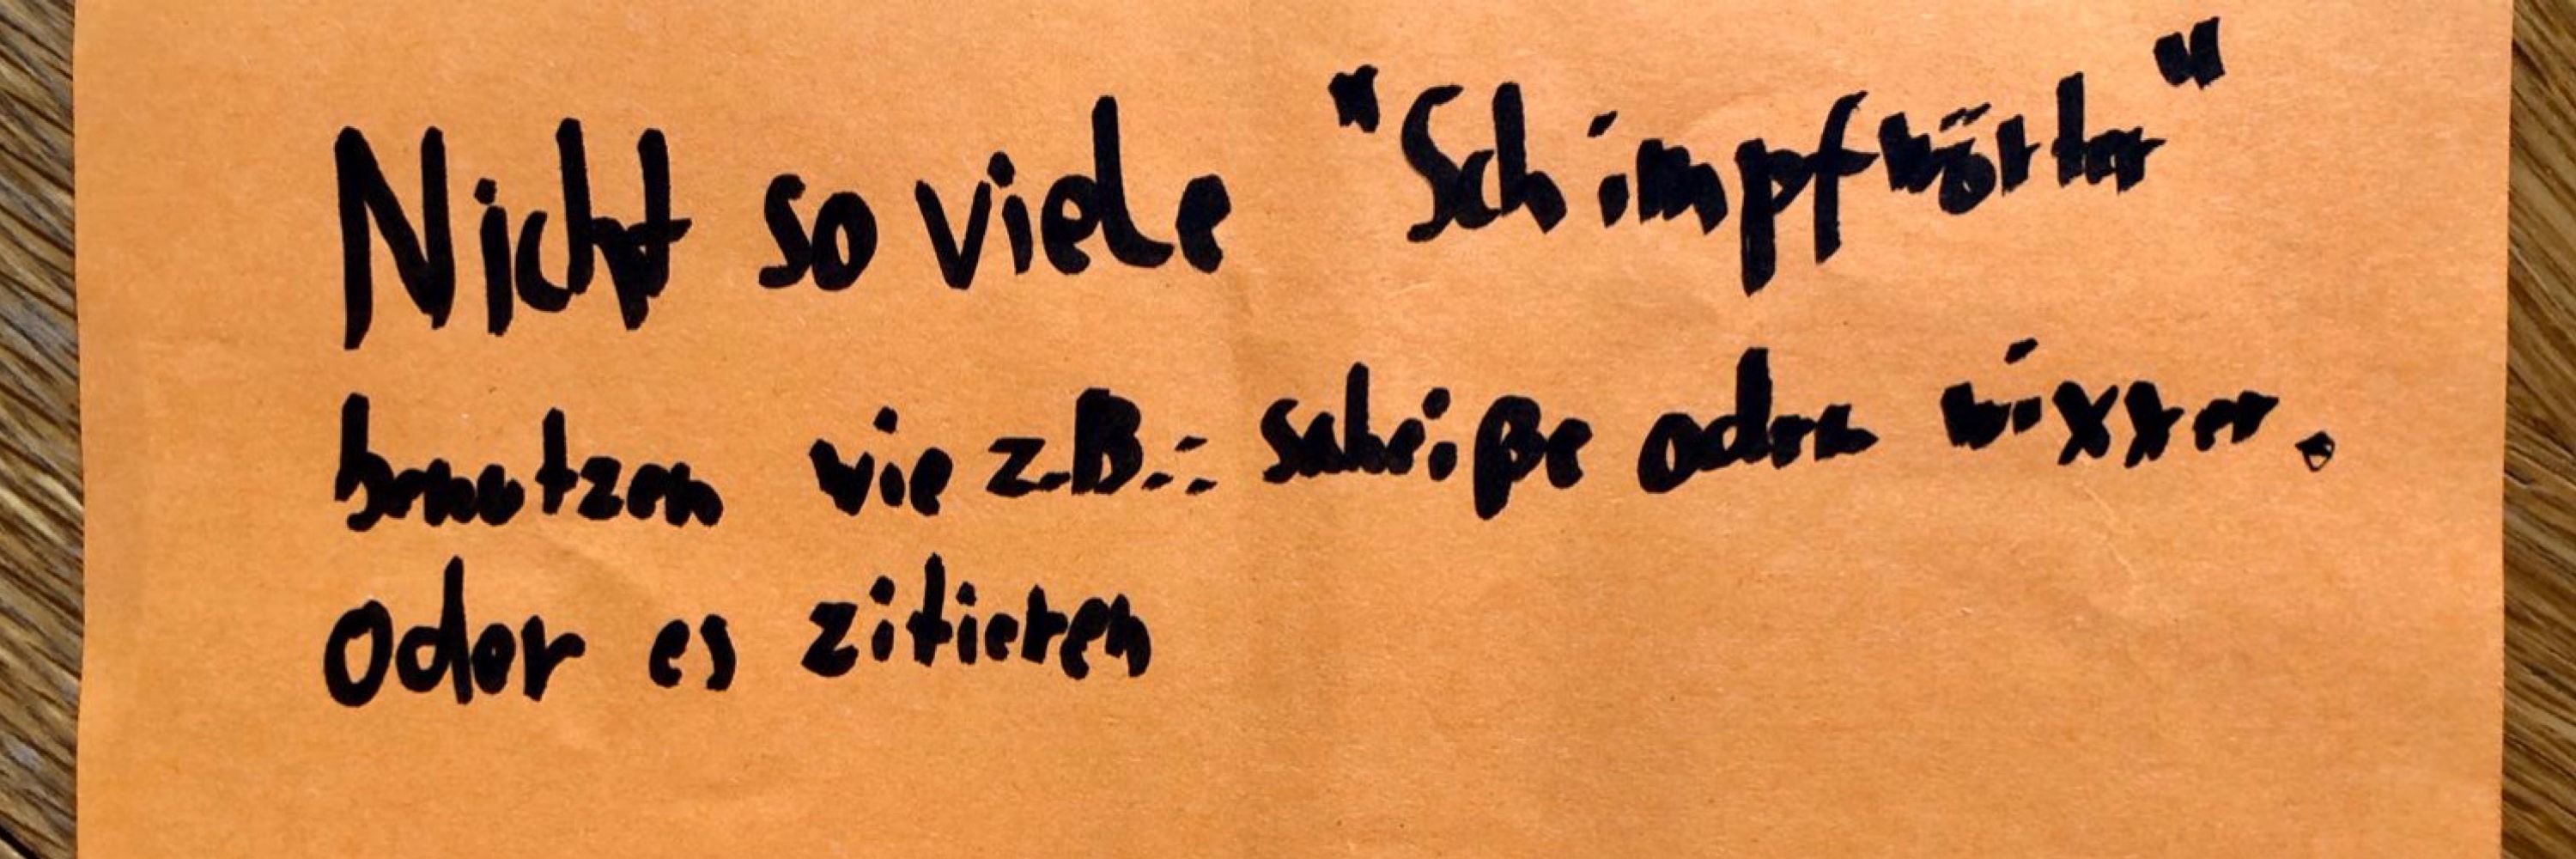 Nicht so viele "Schimpfwörter"
benutzen wie z.B.: scheiße oder wixxer.
oder es zitieren